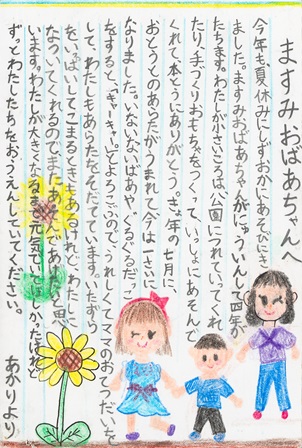 ますみおばあちゃんへ
今年も、夏休みにしずおかにあそびにき
ました。ますみおばあちゃんがにゅういんして四年が
たちます。わたしが小さいころは、公園につれていってくれ
たり、手づくりおもちゃをつくって、いっしょにあそんで
くれて本とうにありがとう。きょ年の七月に、
おとうとのあらたがうまれて今は一さいに
なりました。「いないいないばあ」や「ぐるぐるだこ」
をすると、「キャーキャー」とよろこぶので、うれしくてママのおてつだいで
して、わたしもあらたをそだてています。いたずら
をいっぱいしてこまるときもあるけれど、わたしに
なついてくれるのでまたあそんであげようと思
います。わたしが大きくなるまで元気でいてほしかったけれど
ずっとわたしたちをおうえんしていてください。
あかりより